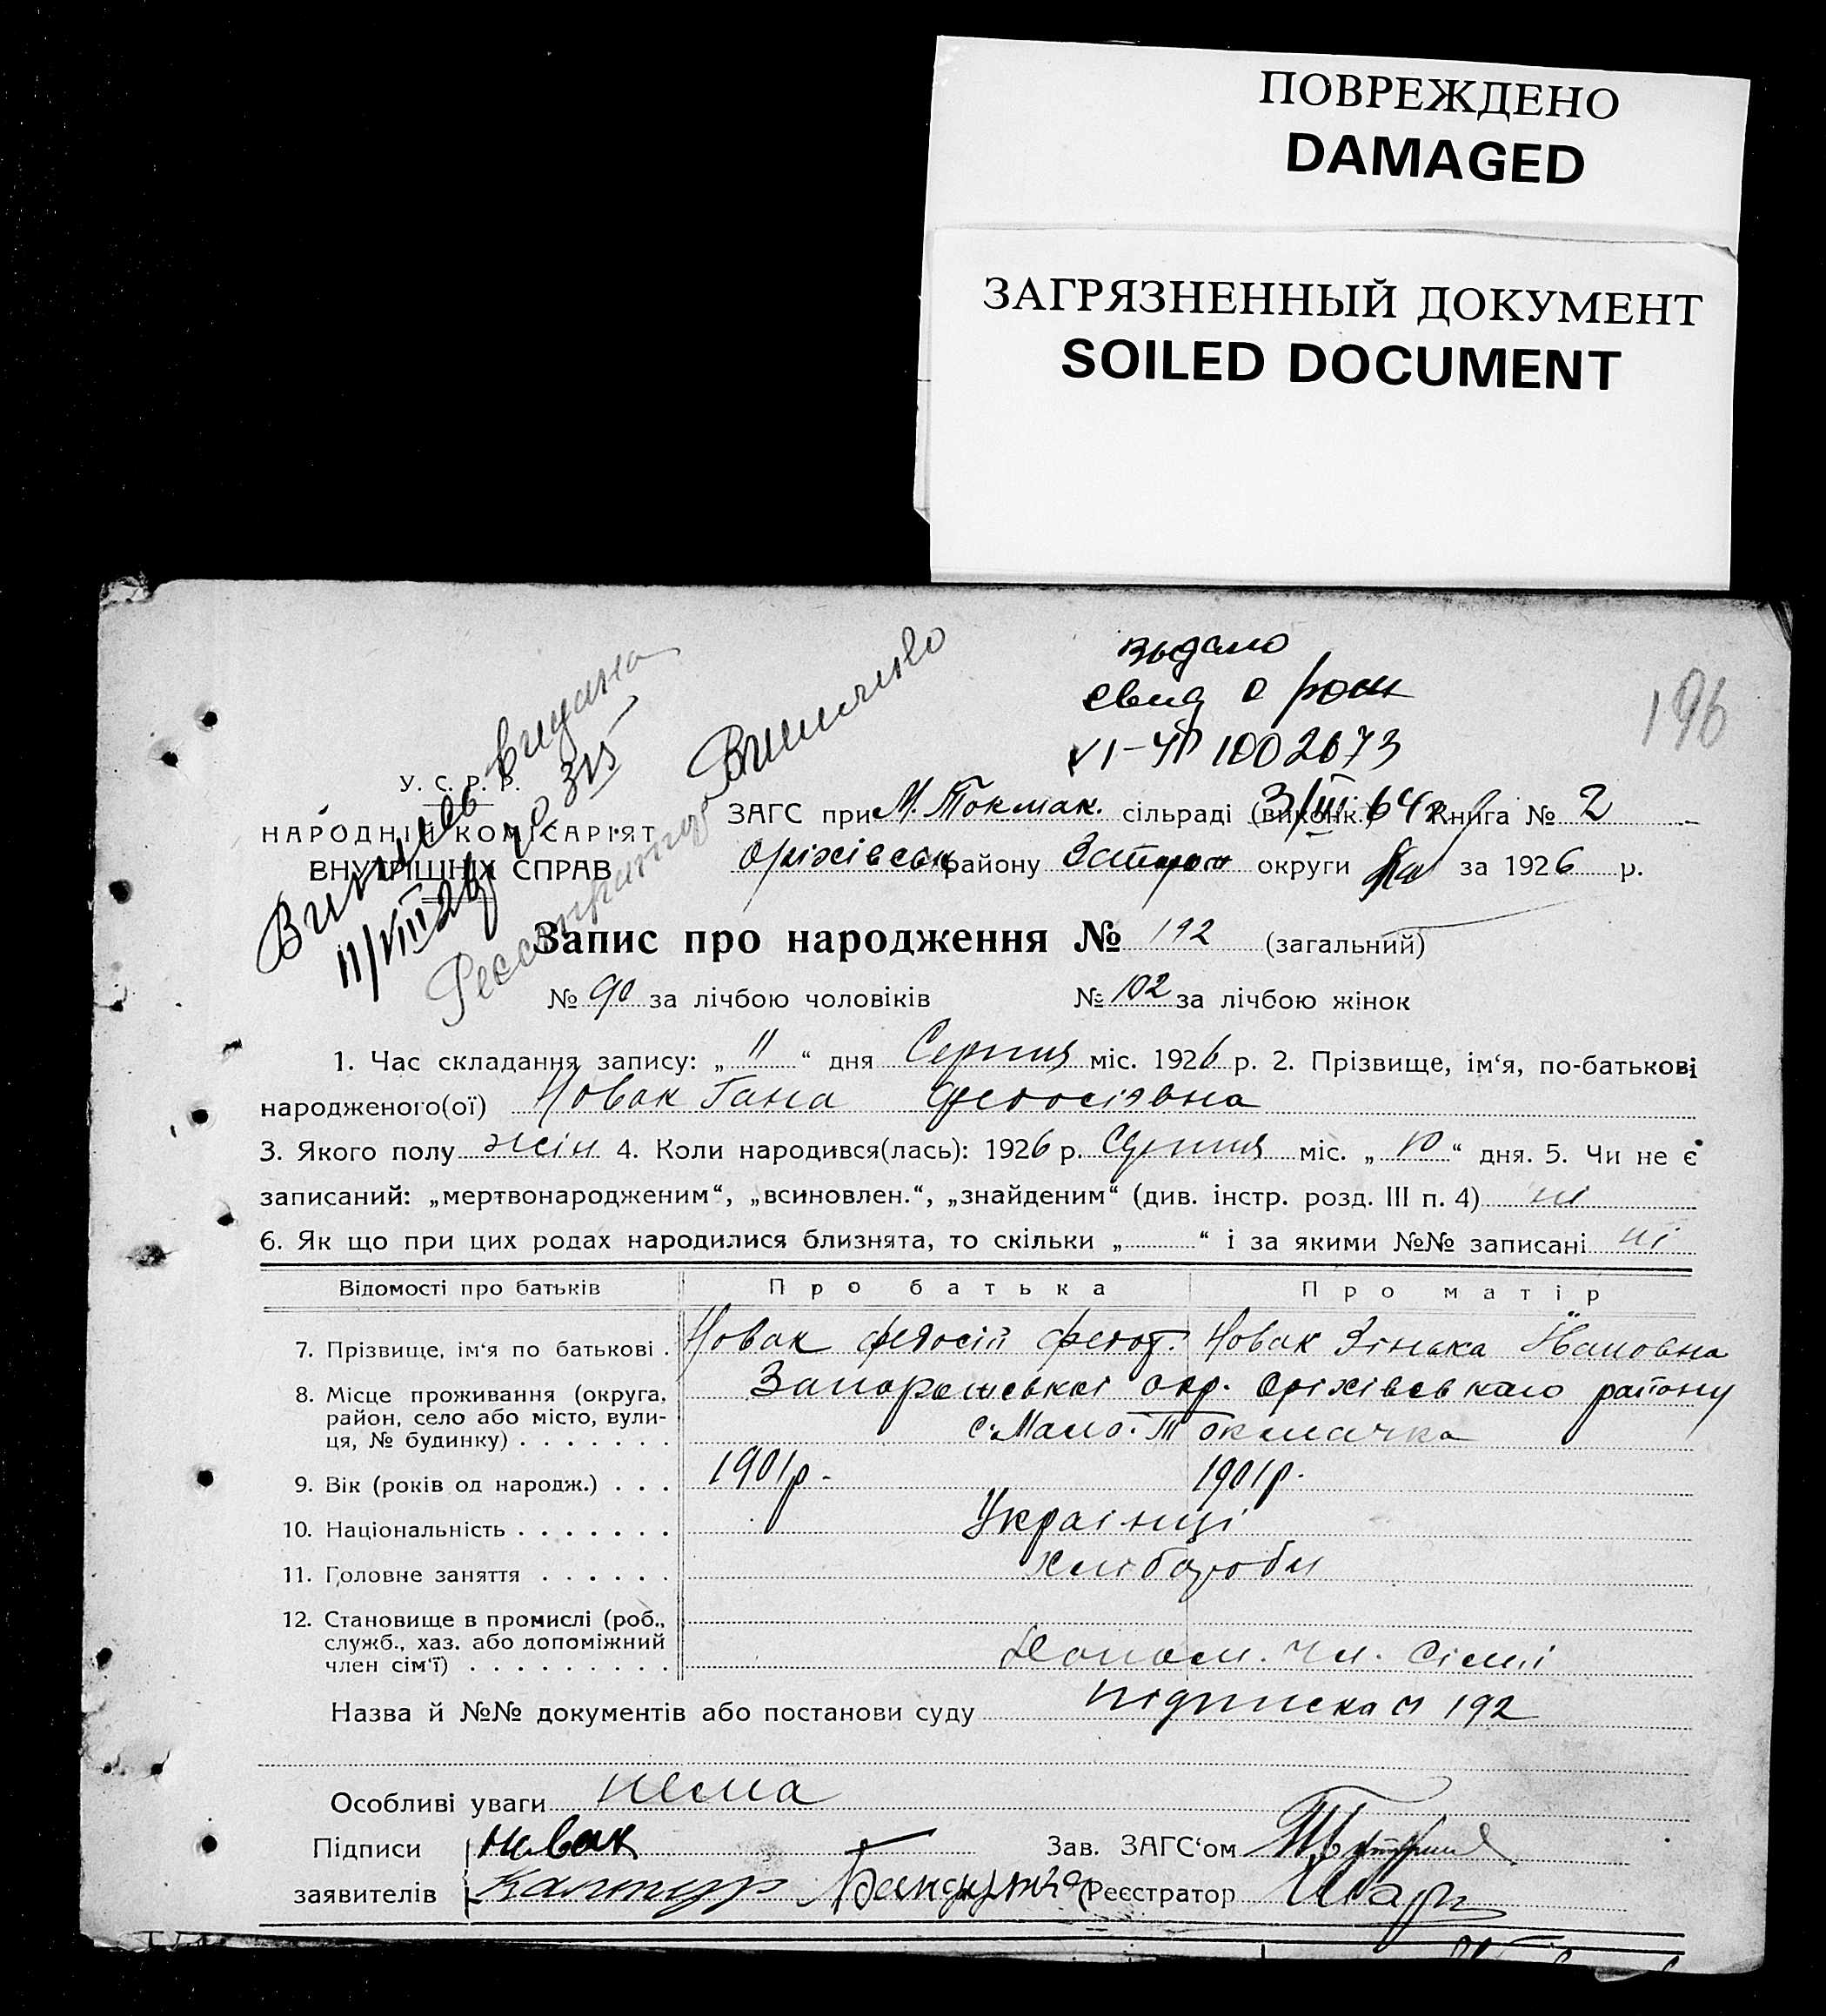 ПОВРЕЖДЕНО
DAMAGED
ЗАГРЯЗНЕННЫЙ ДОКУМЕНТ
SOILED DOCUMENT
196
выдано
свид о рож
VI-ЯП 1002673
3/III 64 г.
Витись видана
11/VIII 26 р. № 315
У. С. Р. Р.
НАРОДНІЙ КОМІСАРІЯТ
ВНУТРІШНІХ СПРАВ
ЗАГС при М. Токмак. сільраді (виконк.) Книга № 2
Оріхівськ району Запор округи за 1926 р.
Запис про народження № 192 (загальний)
№ 90 за лічбою чоловіків № 102 за лічбою жінок
1. Час складання запису: „ 11 “ дня Серпня міс. 1926 р. 2. Прізвище, ім‘я, по-батькові
народженого(ої) Новак Гана Федосіявна
3. Якого полу жін 4. Коли народився(лась): 1926 р. Серпня міс. „ 10 “ дня. 5. Чи не є
записаний: „мертвонародженим“, „всиновлен.“, „знайденим“ (див. інстр. розд. III п. 4) ні
6. Як що при цих родах народилися близнята, то скільки „ “ і за якими №№ записані ні
Відомості про батьків Про батька Про матір
7. Прізвище, ім‘я по батькові . Новак Федосій Федот. Новак Зінька Івановна
8. Місце проживання (округа, Запорожської окр. Оріхівського району
район, село або місто, вули- с. Мало-Токмачка
ця, № будинку) . . . . . . .
9. Вік (років од народж.) . . . 1901р. 1901р.
10. Національність . . . . . . . Українці
11. Головне заняття . . . . . . Хлібороби
12. Становище в промислі (роб.,
служб., хаз. або допоміжний
член сім‘ї) . . . . . . . . . Допом. чл. сімї
Назва й №№ документів або постанови суду підписка ч 192
Особливі уваги нема
Підписи Новак Зав. ЗАГС‘ом
заявителів Реєстратор